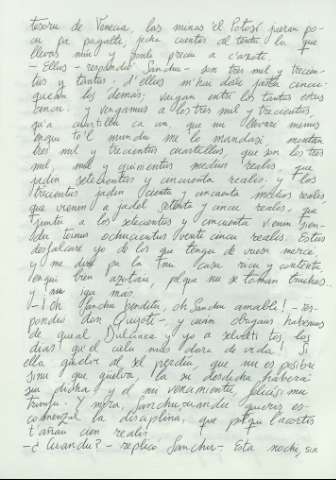 tesoru de Venecia, las minas 'el Potosí pueran po-
cu pa pagatte,
llevas míu y ponle preciu a c'azote.
- Ellus - respondió Sancho - son tres mil y trecien-
tus y tantus. d'ellus m'hai dáu jatta cincu:
quedan los demás; vengan entre los tantus estus
cincu. y vengamus a los tres mil y trecientus
qu'a cuartillu ca un, que nu llevaré menus
anqui to'l mundu me lo mandasi, montan
tres mil y trecientus cuartillus, que son los tres
mil, mil y quinientus medius reales, que
jadin setecientus y cincuenta reales; y los
trecientus jadin cientu y cincuenta medius reales,
que vienin a jadel setenta y cincu reales, que
juntu a los setecientus y cincuenta vienin sien-
du tóus ochucientus venti cincu realis. Estus
desfalcaré yo de los que tengu de vuesa mercé
y me diré pa la mi casa ricu y contentu
enqui bien azotáu, polque nu se toman truchas..
y nu igu más.
- ¡Oh Sancho benditu, oh Sancho amable! - res-
pondió don Quijoti - y cuán obligaus habemus
de queal Dulcinea y yo a selviti tos los
dias qu'el cielu mus diera de vida! Si
ella güelvi al sel perdíu, que nu es posible
sinu que güelva, la su desdicha habrá
siu dicha, y el mi vencimientu felicísimu
triunfu. Y mira, Sancho, cuandu quieras es-
comenzal la disciplina, que polque l'acortis
t'añau cien realis.
- ¿Cuandu? - replicó Sancho - Esta nochi, sin